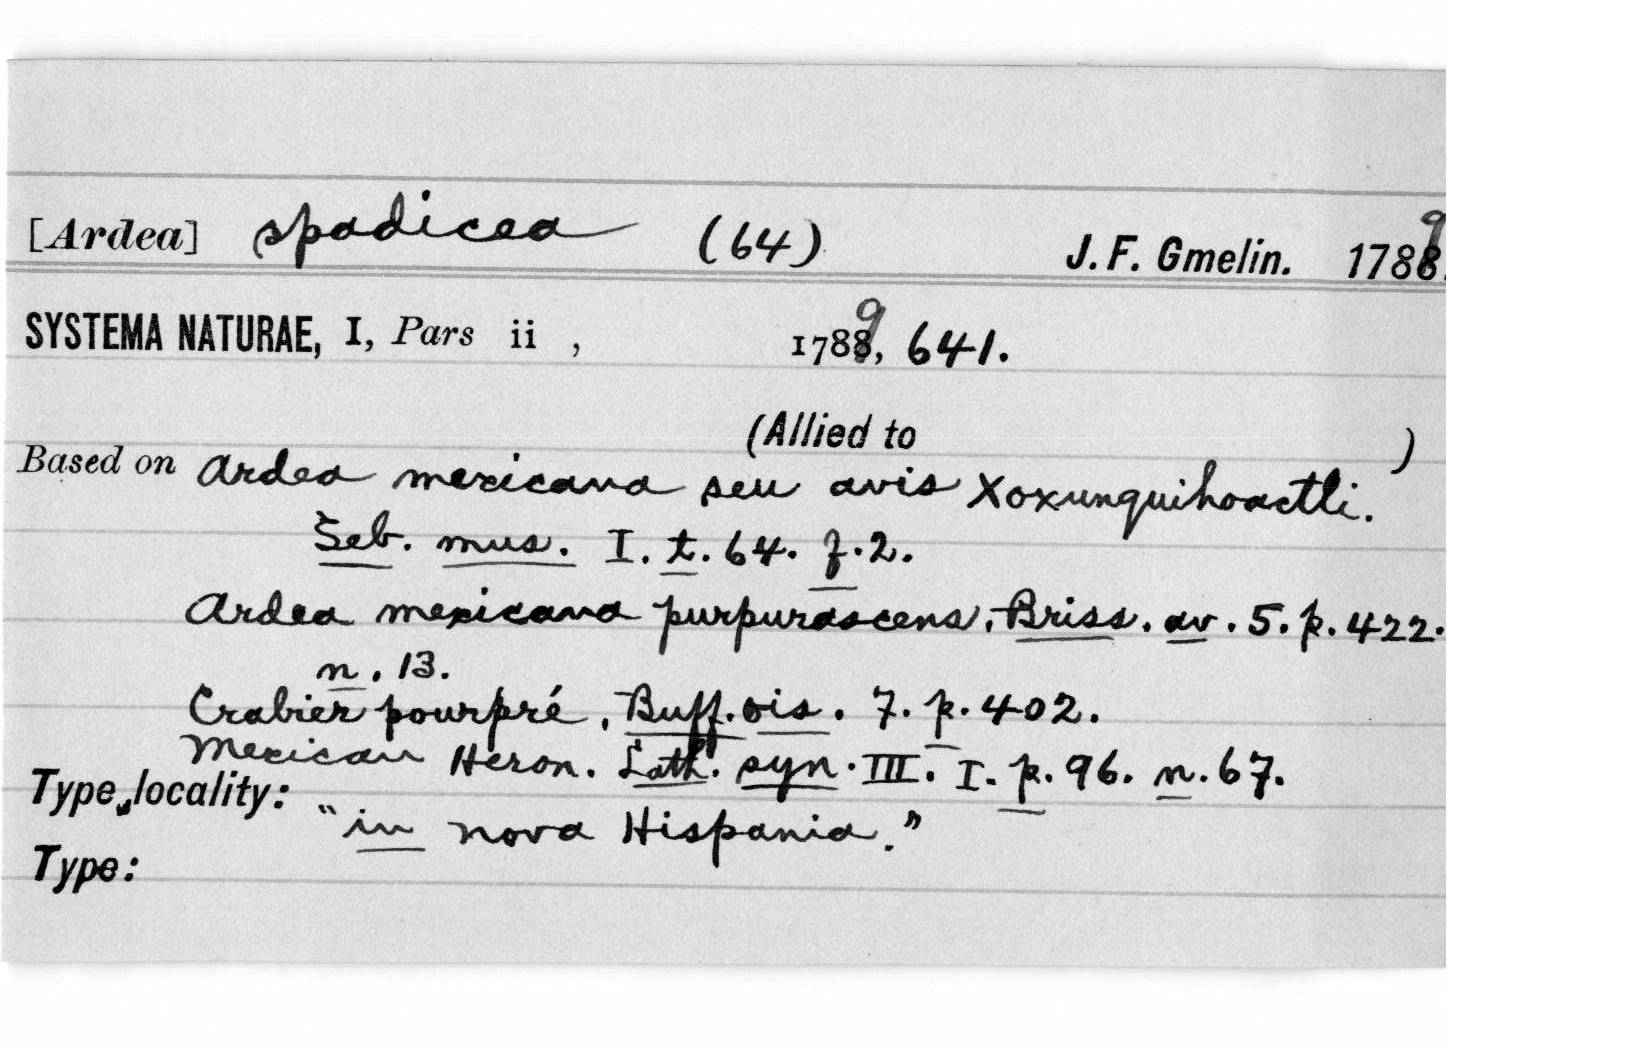 [Ardea] spadicea (64) J. F. Gmelin. 1789.
SYSTEMA NATURAE, I, Pars ii , 1789, 641.
(Allied to )
Based on Ardea mexicana seu avis Xoxunquihoactli.
Seb. mus. I. t. 64. f. 2.
Ardea mexicana purpurascens, Briss. av. 5. p. 422.
n. 13.
Crabier pourpré, Buff. ois. 7. p. 402.
Mexican Heron. Lath. syn. III. I. p. 96. n. 67.
Type locality: "in nova Hispania."
Type: